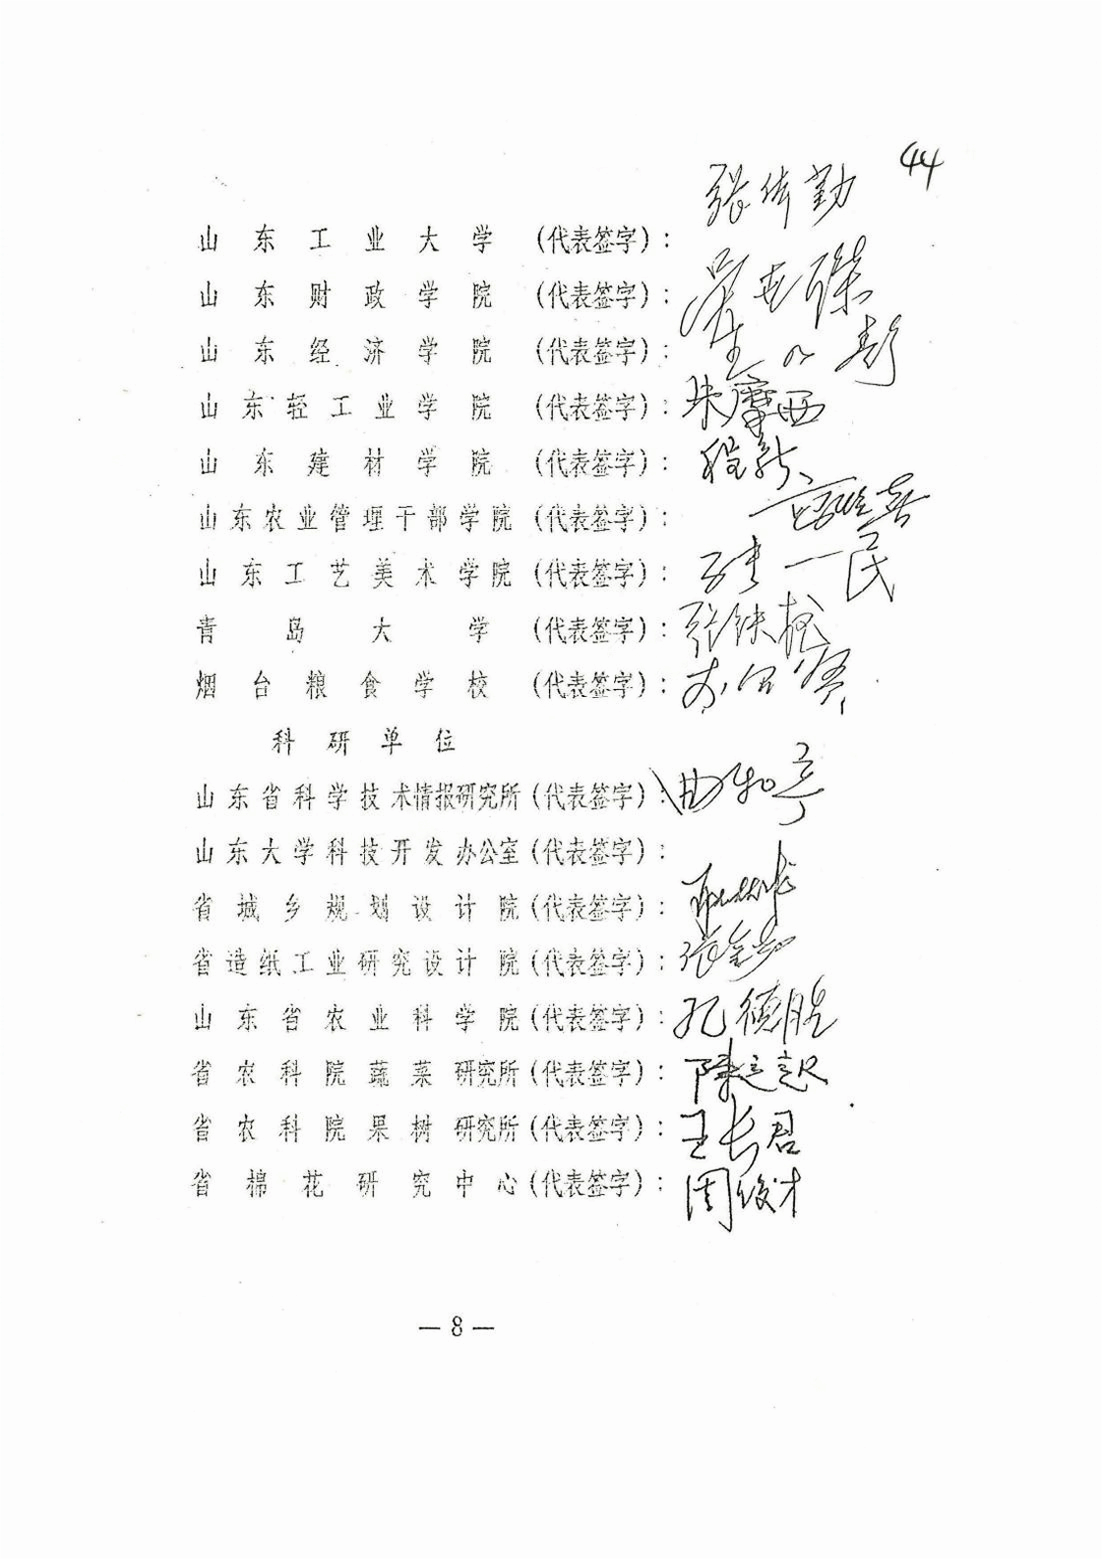 44
山东工业大学（代表签字）： 张体勤
山东财政学院（代表签字）：
山东经济学院（代表签字）：
山东轻工业学院（代表签字）： 朱摩西
山东建材学院（代表签字）： 程新
山东农业管理干部学院（代表签字）：
山东工艺美术学院（代表签字）： 孙长一民
青岛大学（代表签字）： 张铁
烟台粮食学校（代表签字）：
科研单位
山东省科学技术情报研究所（代表签字）： 曲和亭
山东大学科技开发办公室（代表签字）：
省城乡规划设计院（代表签字）：
省造纸工业研究设计院（代表签字）： 张金
山东省农业科学院（代表签字）： 孔德胜
省农科院蔬菜研究所（代表签字）： 陈运起
省农科院果树研究所（代表签字）： 王长君
省棉花研究中心（代表签字）： 周俊才
— 8 —